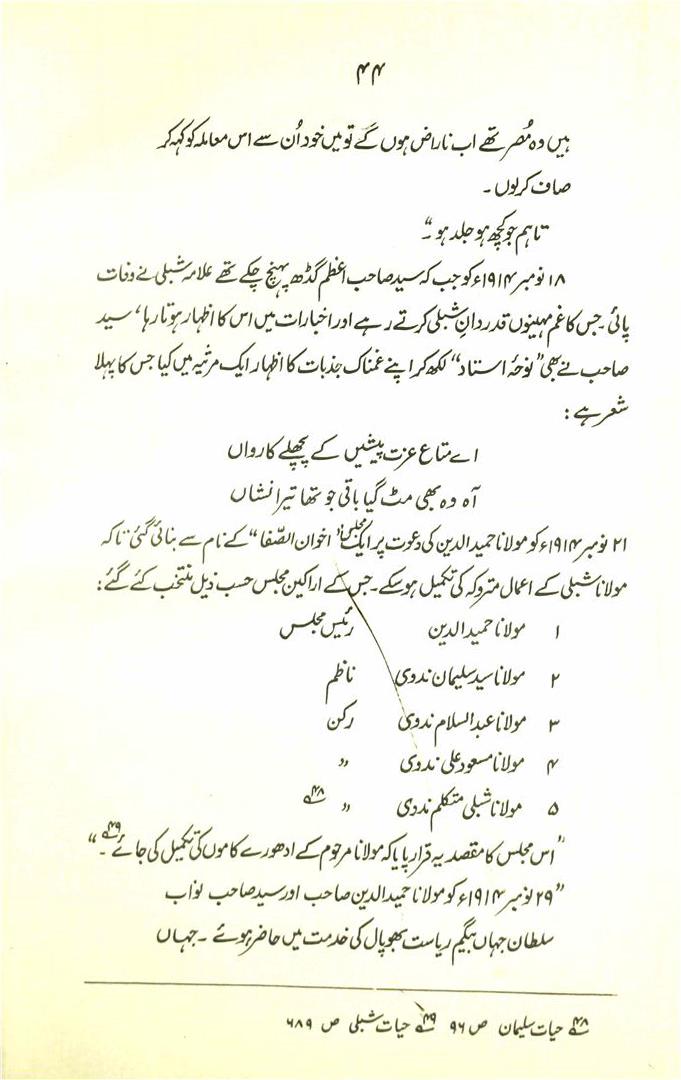 ۴۴
ہیں وہ مُصر تھے اب ناراض ہوں گے تو میں خود اُن سے اس معاملہ کو کہہ کر
صاف کرلوں ۔
تاہم جو کچھ ہو جلد ہو ۔“
۱۸ نومبر ۱۹۱۴ء کو جب کہ سید صاحب اعظم گڈھ پہنچ چکے تھے علامہ شبلی نے وفات
پائی ۔ جس کا غم مہینوں قدردانِ شبلی کرتے رہے اور اخبارات میں اس کا اظہار ہوتا رہا ، سید
صاحب نے بھی ”نوحۂ استاد“ لکھ کر اپنے غمناک جذبات کا اظہار ایک مرثیہ میں کیا جس کا پہلا
شعر ہے :
اے متاع عزت پیشیں کے پچھلے کارواں
آہ وہ بھی مٹ گیا باقی جو تھا تیرا نشاں
۲۱ نومبر ۱۹۱۴ء کو مولانا حمید الدین کی دعوت پر ایک مجلس ”اخوان الصّفا“ کے نام سے بنائی گئی تاکہ
مولانا شبلی کے اعمال متروکہ کی تکمیل ہو سکے ۔ جس کے اراکین مجلس حسب ذیل منتخب کئے گئے :
۱ مولانا حمید الدین رئیس مجلس
۲ مولانا سید سلیمان ندوی ناظم
۳ مولانا عبدالسلام ندوی رکن
۴ مولانا مسعود علی ندوی ”
۵ مولانا شبلی متکلم ندوی ” ۴۸؎
”اس مجلس کا مقصد یہ قرار پایا کہ مولانا مرحوم کے ادھورے کاموں کی تکمیل کی جائے ۴۹؎ ۔“
”۲۹ نومبر ۱۹۱۴ء کو مولانا حمید الدین صاحب اور سید صاحب نواب
سلطان جہاں بیگم ریاست بھوپال کی خدمت میں حاضر ہوئے ۔ جہاں
۴۸؎ حیات سلیمان ص ۹۶ ۴۹؎ حیات شبلی ص ۶۸۹